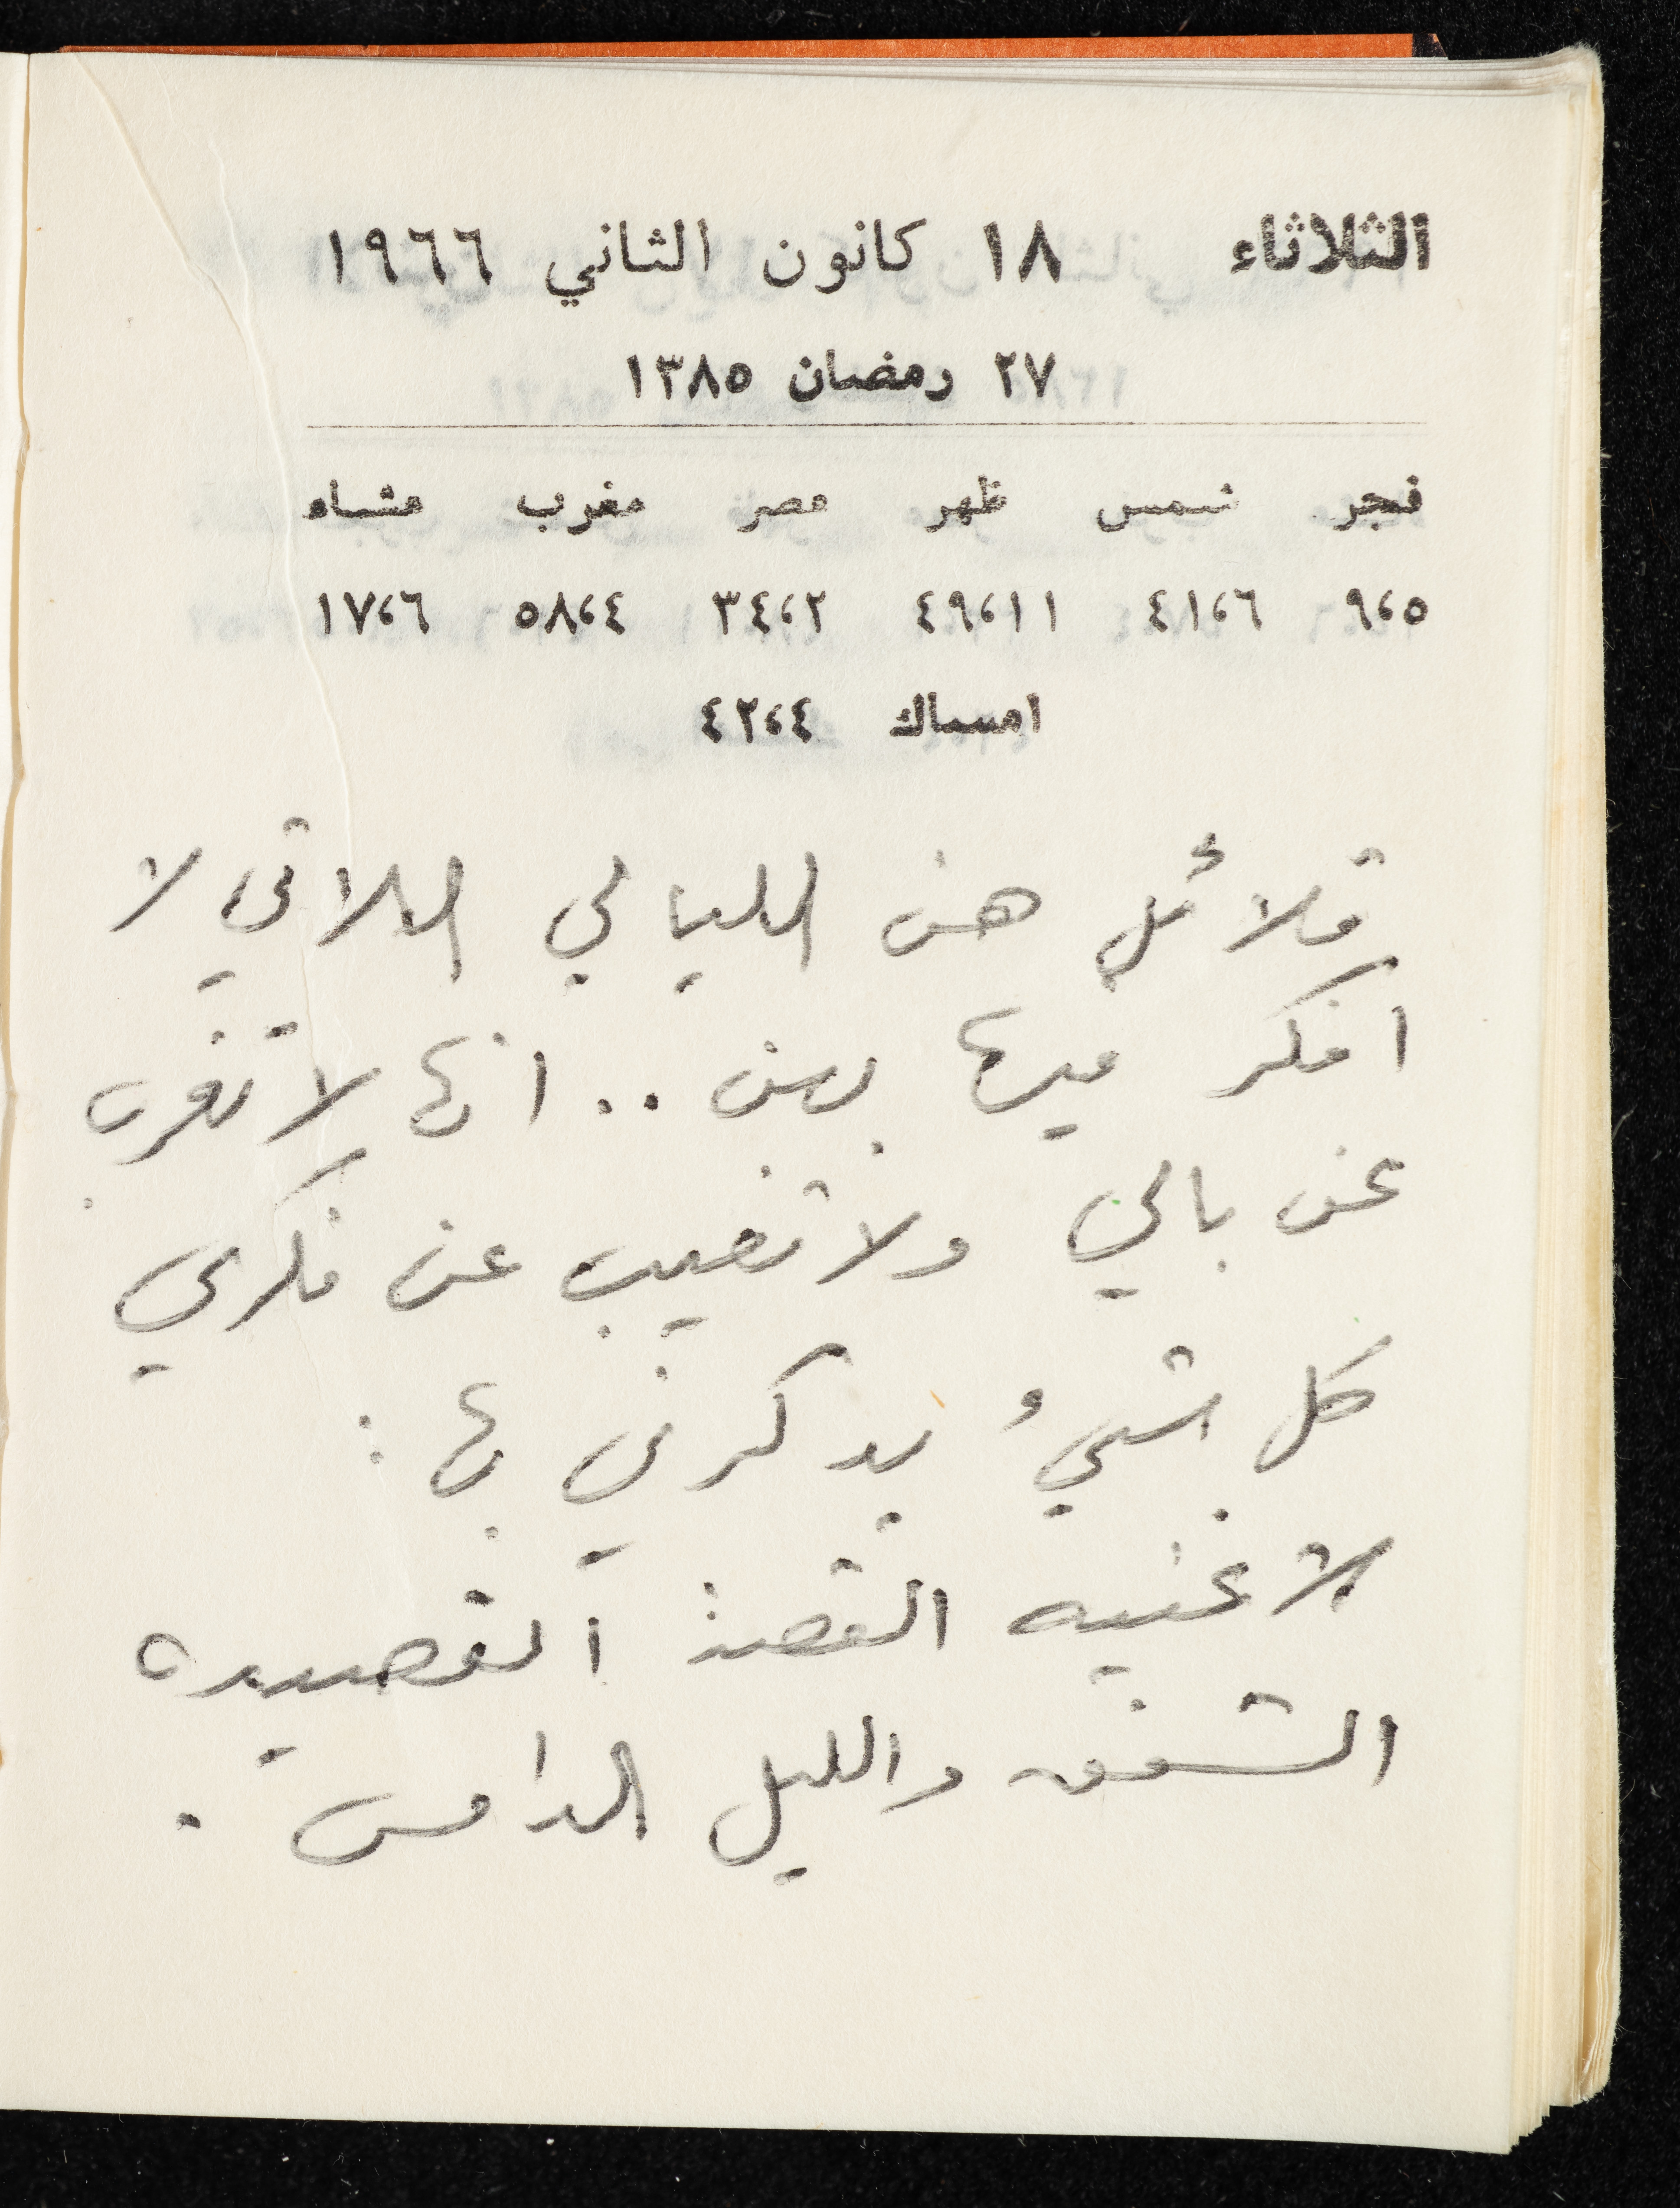 الثلاثاء ١٨ كانون الثاني ١٩٦٦
٢٧ رمضان ١٣٨٥
فجر شمس ظهر عصر مغرب عشاء
٩،٥ ٤١،٦ ٤٩،١١ ٣٤،٢ ٥٨،٤ ١٧،٦
امساك ٤٢،٤
قلائل هن الليالي اللاتي لا
افكر فيها بهن .. انها لا تغرب
عن بالي ولا تغيب عن فكري
كل شيءُ يذكرني بها :
الاغنيه القصة القصيده
الشفق والليل الدامس .